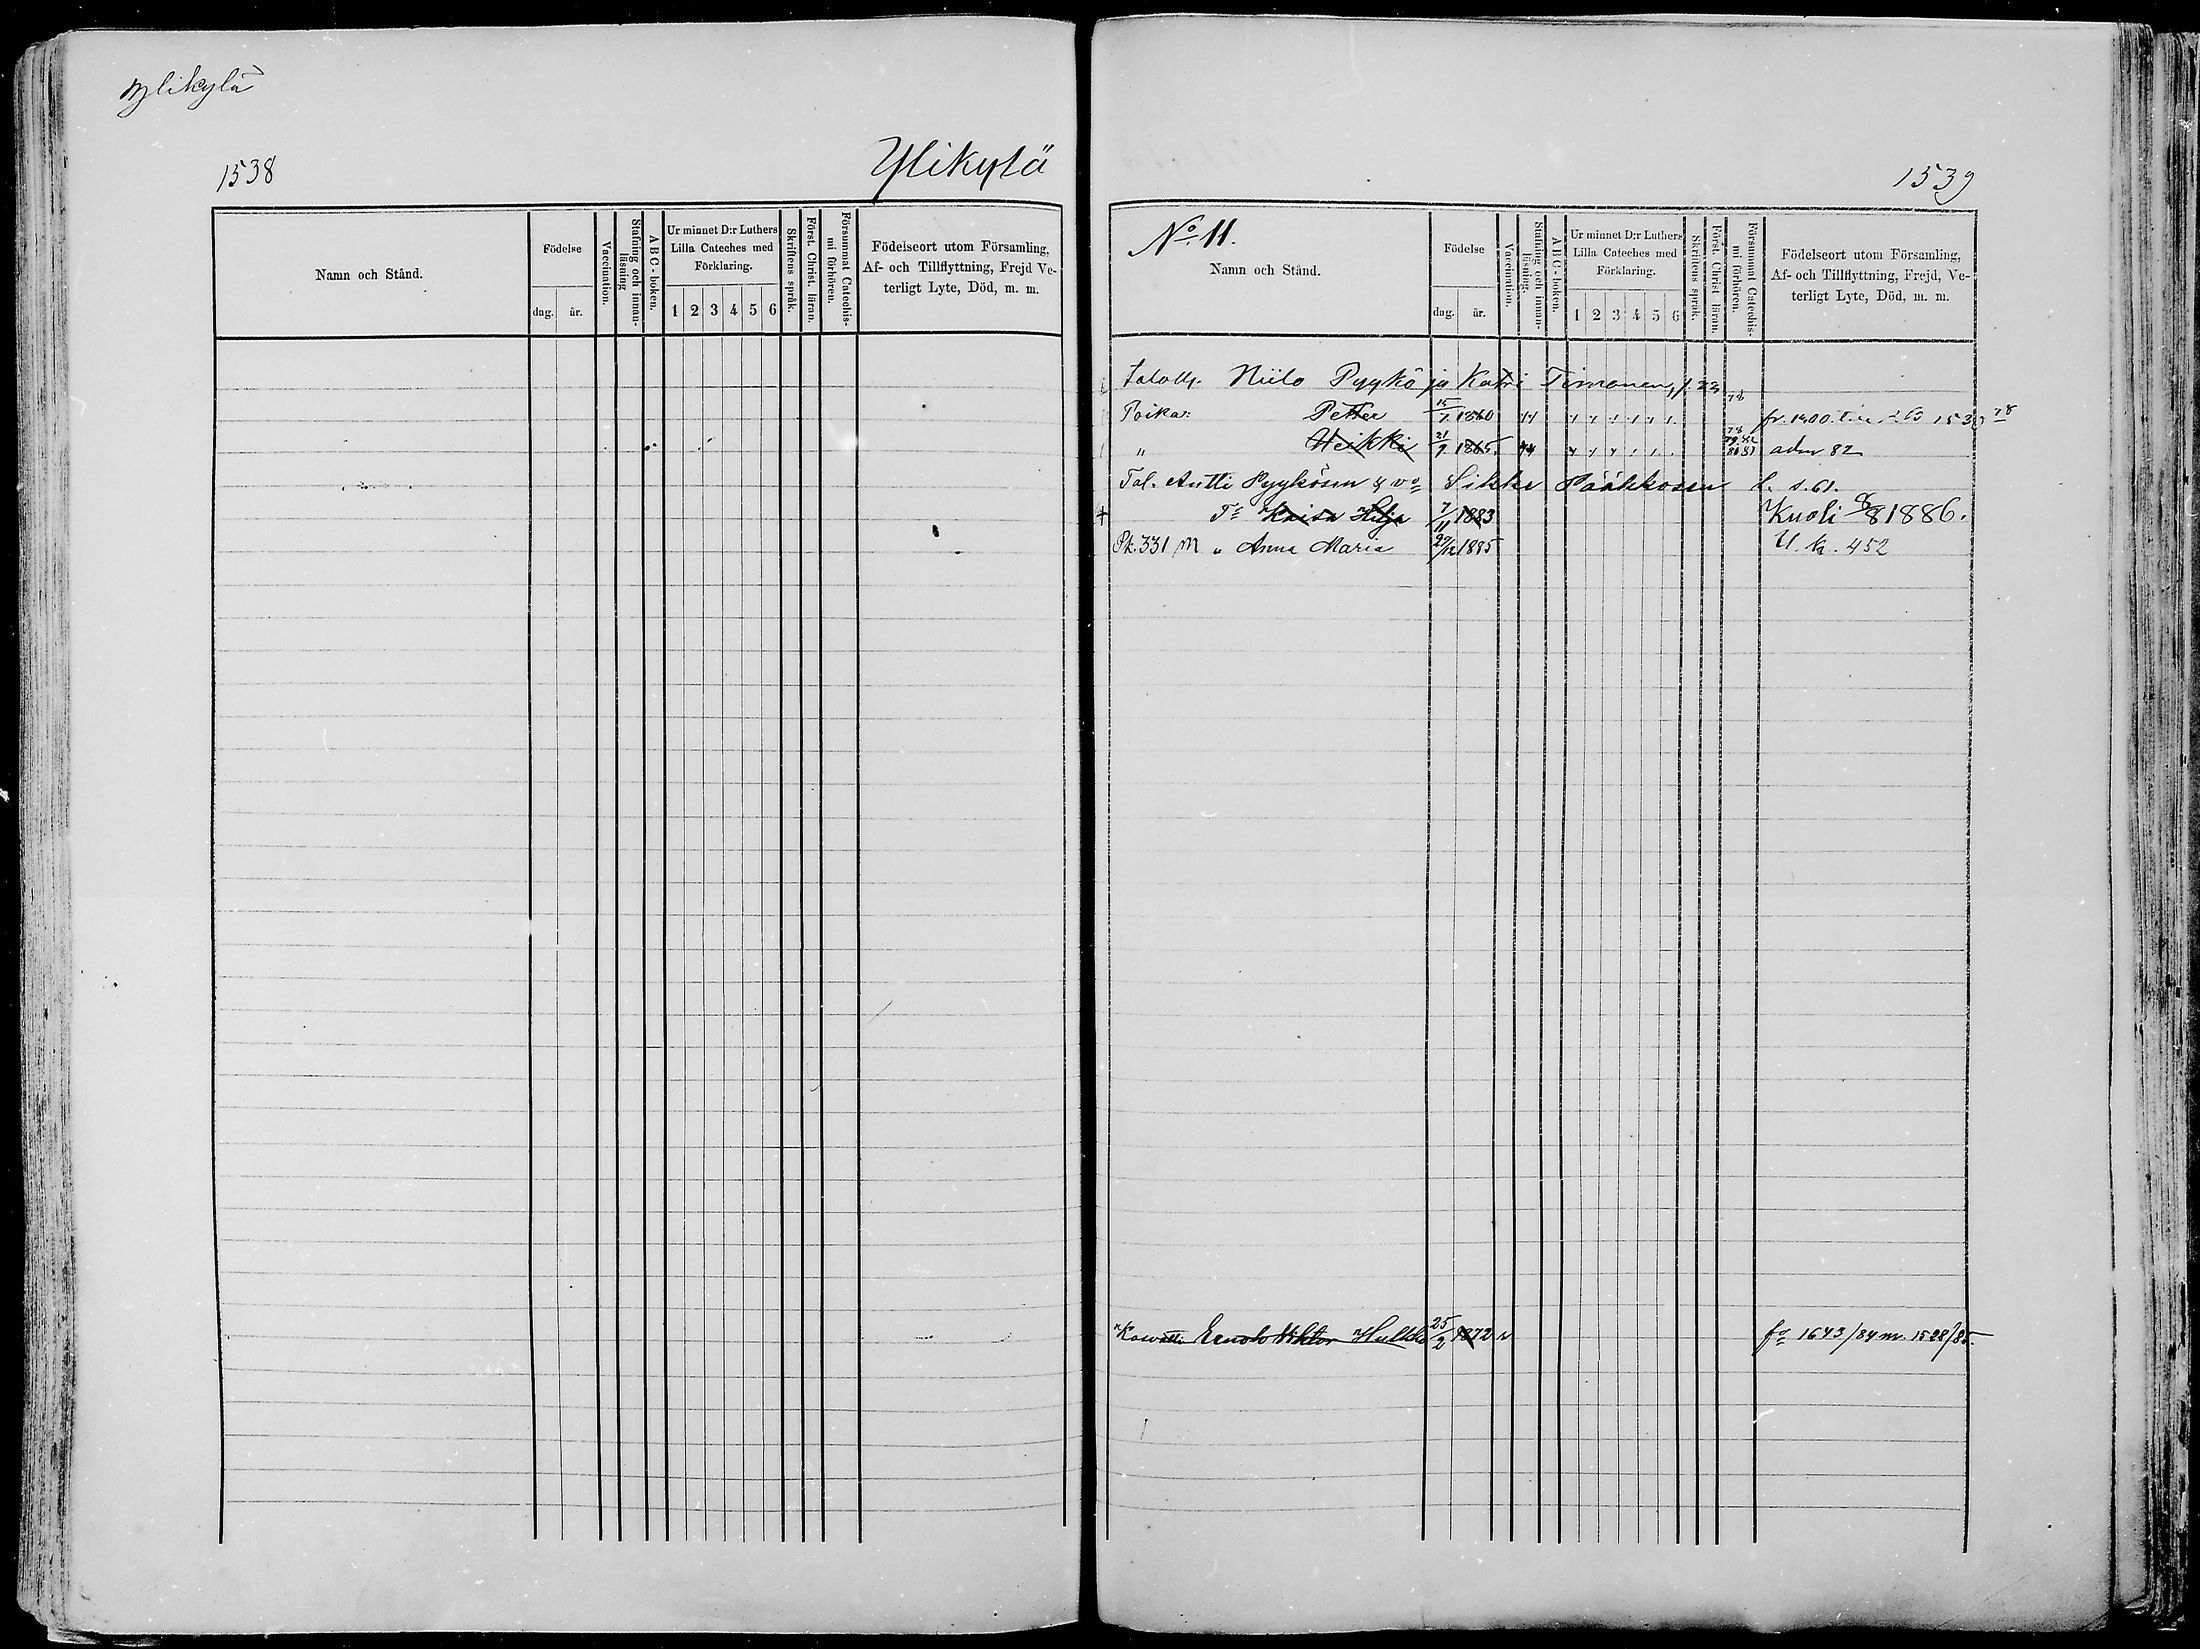 Ylikylä
1538
Ylikylä
Namn och Stånd.
Födelse
dag. år.
Vaccination.
Stafning och innan-läsning
ABC-boken.
Ur minnet D:r Luthers Lilla Cateches med Förklaring.
1 2 3 4 5 6
Skriftens språk.
Först. Christ. läran.
Försummat Catechis-mi förhören.
Födelseort utom Församling, Af- och Tillflyttning, Frejd Ve-terligt Lyte, Död, m. m.
1539
No. 11.
Namn och Stånd.
Födelse
dag. år.
Vaccination.
Stafning och innan-läsning.
ABC-boken.
Ur minnet D:r Luthers Lilla Cateches med Förklaring.
1 2 3 4 5 6
Skriftens språk.
Först. Christ. läran.
Försummat Catechis-mi förhören.
Födelseort utom Församling, Af- och Tillflyttning, Frejd, Ve-terligt Lyte, Död, m. m.
Niilo Pyykö ja Katri Timonen,
Poika: Petter 15/1 1860 78
" Heikki 21/9 1865. 78 79. 82 80 81 adm. 82
Tal. Antti Pyykösen & vo Sikke Pääkkosen l. s. 61.
+ Tr Kaisa Hilja 7/11 1883 Kuoli 8/8 1886.
Pk. 331 m " Anna Maria 29/12 1885 U. k. 452
Kasvatti Viktor Hulkko 25/2 1872 fr 1643/84 m. 1528/85.